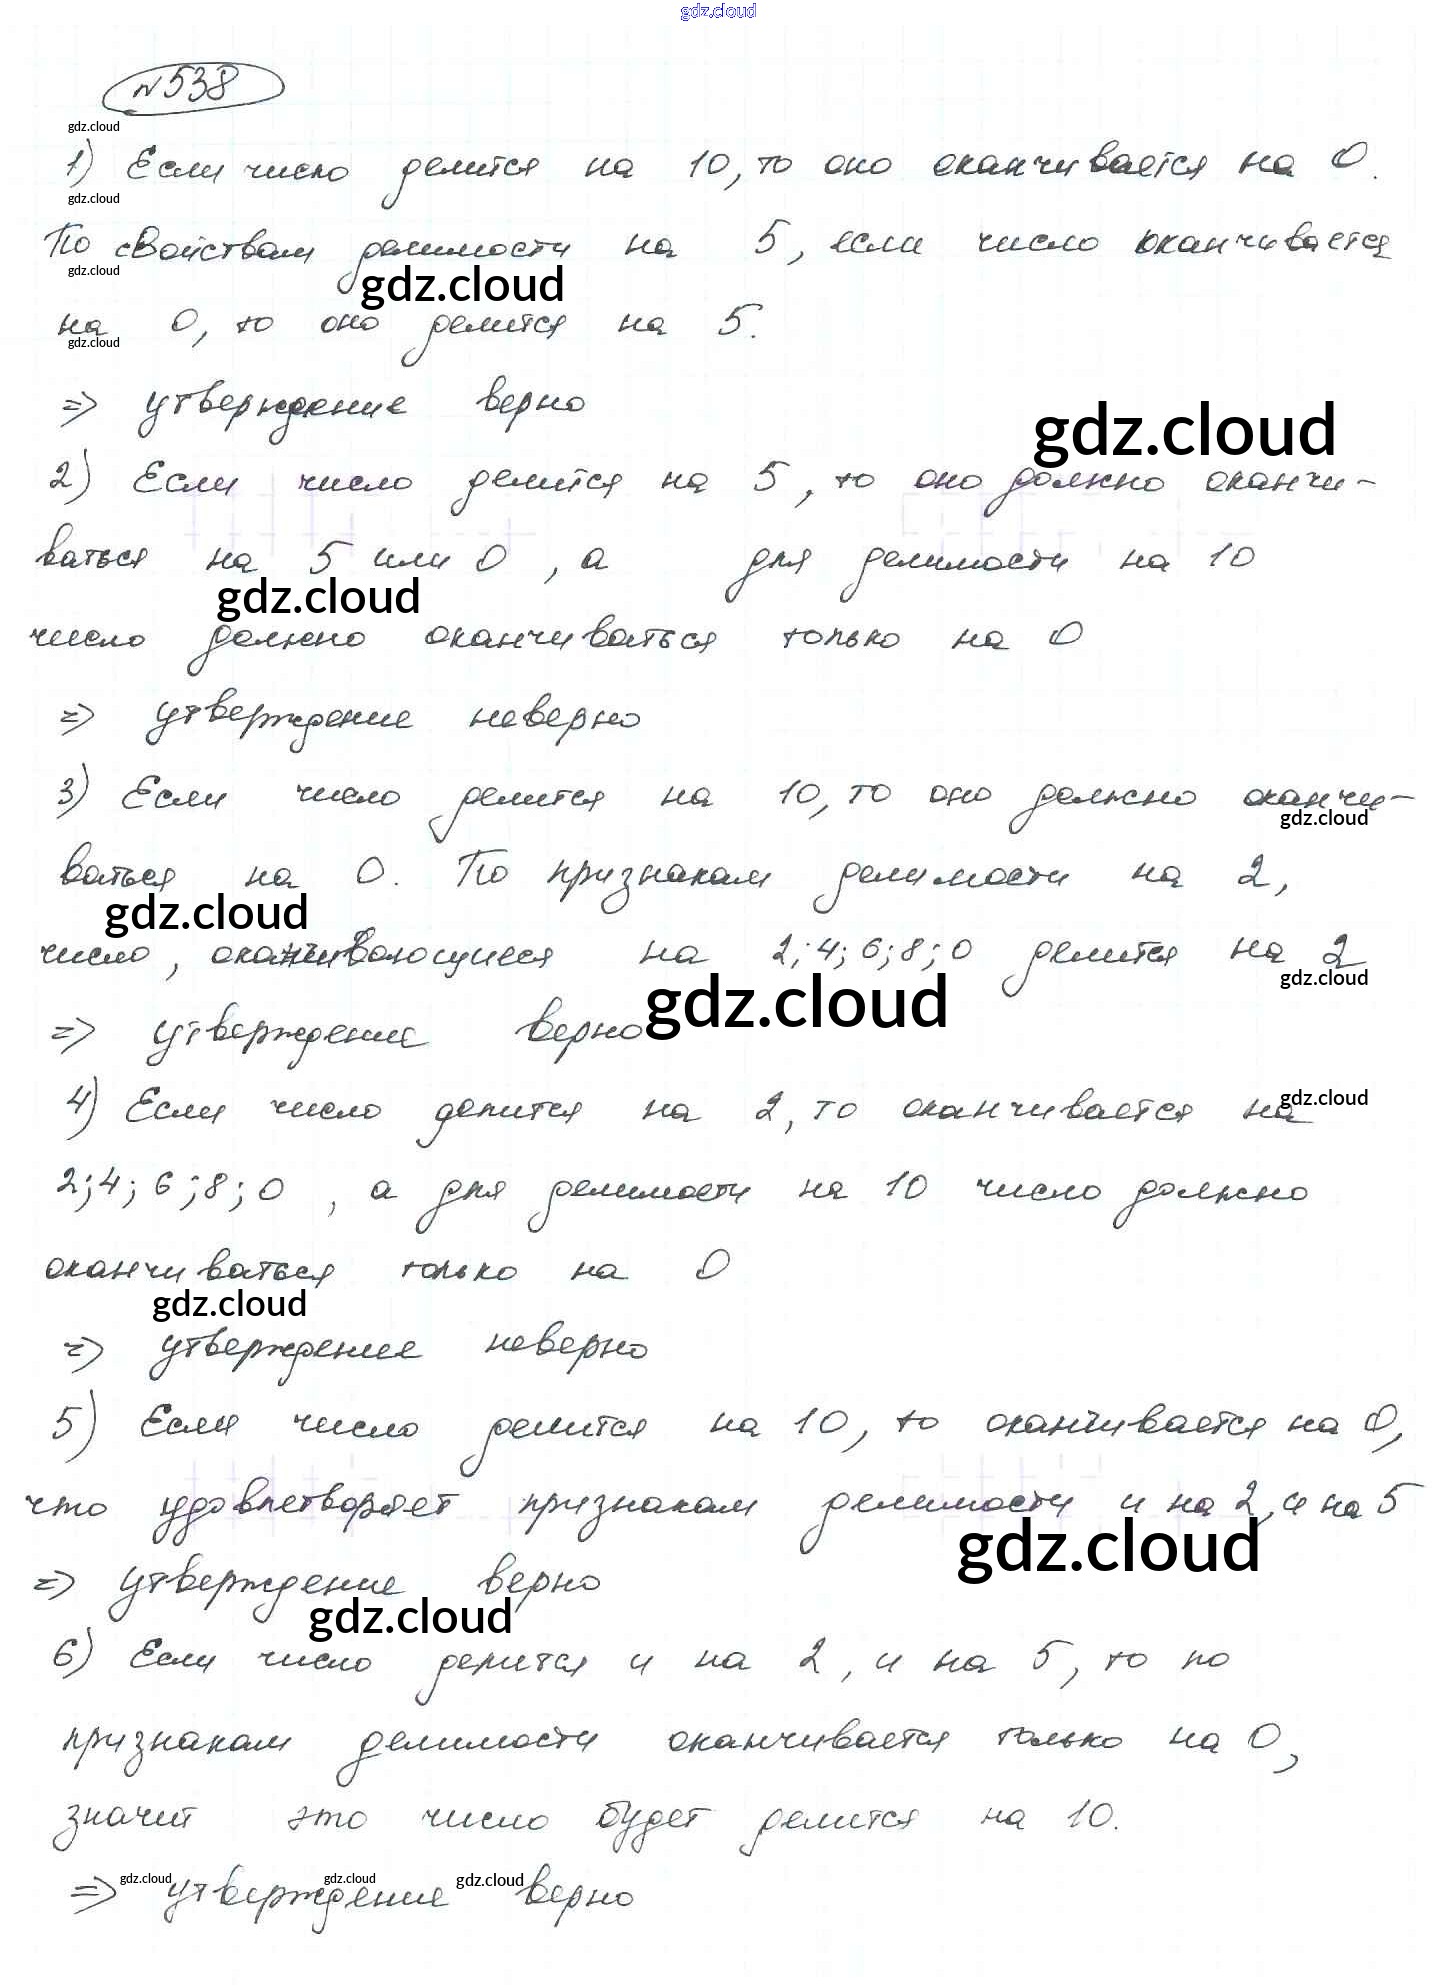 gdz.cloud
№538
gdz.cloud
1) Если число делится на 10, то оно оканчивается на 0.
gdz.cloud
По свойствам делимости на 5, если число оканчивается
gdz.cloud
gdz.cloud
на 0, то оно делится на 5.
gdz.cloud
=> утверждение верно
gdz.cloud
2) Если число делится на 5, то оно должно оканчи-
ваться на 5 или 0, а для делимости на 10
gdz.cloud
число должно оканчиваться только на 0
=> утверждение неверно
3) Если число делится на 10, то оно должно оканчи-
gdz.cloud
ваться на 0. По признакам делимости на 2,
gdz.cloud
число, оканчивающиеся на 2; 4; 6; 8; 0 делится на 2
gdz.cloud
gdz.cloud
=> утверждение верно
4) Если число делится на 2, то оканчивается на
gdz.cloud
2; 4; 6; 8; 0, а для делимости на 10 число должно
оканчиваться только на 0
gdz.cloud
=> утверждение неверно
5) Если число делится на 10, то оканчивается на 0,
что удовлетворяет признакам делимости и на 2, и на 5
gdz.cloud
=> утверждение верно
gdz.cloud
6) Если число делится и на 2, и на 5, то по
признакам делимости оканчивается только на 0,
значит это число будет делится на 10.
gdz.cloud gdz.cloud gdz.cloud
=> утверждение верно